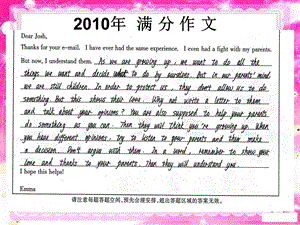 2010年 满 分 作 文
Dear Josh,
Thanks for your e-mail. I have ever had the same experience. I even had a fight with my parents.
But now, I understand them. As we are growing up, we want to do all the
things we want and decide what to do by ourselves. But in our parents' mind
we are still children. In order to protect us, they don't allow us to do
something. But this shows their love. Why not write a letter to them
and talk about your opinions? You are also supposed to help your parents
do something as you can. Then they will think you're growing up. When
you have different opinions, try to listen to your parents and then make
a decision. Don't argue with them. In a word, remember to show your
love and thanks to your parents. Then they will understand you.
I hope this helps!
Emma
请注意每题答题空间,预先合理安排,超出答题区域的答案无效。